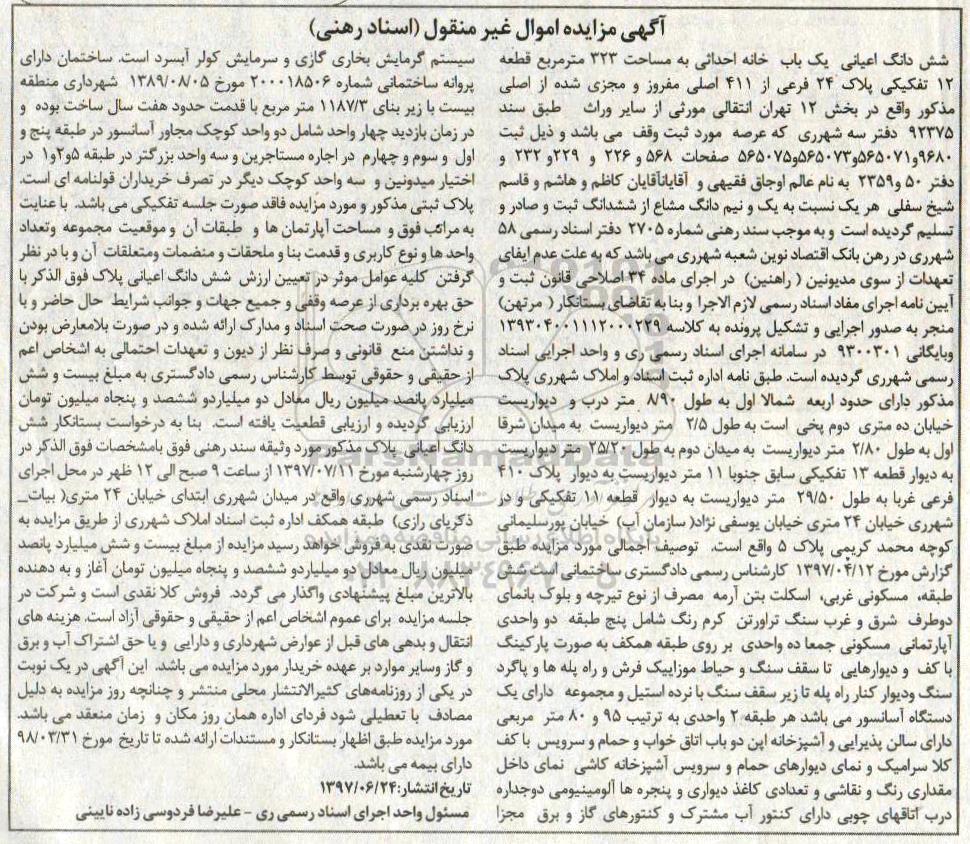 آگهی مزایده اموال غیر منقول (اسناد رهنی)
شش دانگ اعیانی یک باب خانه احداثی به مساحت ۳۲۳ مترمربع قطعه
۱۲ تفکیکی پلاک ۲۴ فرعی از ۴۱۱ اصلی مفروز و مجزی شده از اصلی
مذکور واقع در بخش ۱۲ تهران انتقالی مورثی از سایر وراث طبق سند
۹۲۳۷۵ دفتر سه شهرری که عرصه مورد ثبت وقف می باشد و ذیل ثبت
۹۶۸۰و۵۶۵۰۷۱و۵۶۵۰۷۳و۵۶۵۰۷۵ صفحات ۵۶۸ و ۲۲۶ و ۲۲۹و ۲۳۲ و
دفتر ۵۰ و۲۳۵۹ به نام عالم اوجاق فقیهی و آقایانآقایان کاظم و هاشم و قاسم
شیخ سفلی هر یک نسبت به یک و نیم دانگ مشاع از ششدانگ ثبت و صادر و
تسلیم گردیده است و به موجب سند رهنی شماره ۲۷۰۵ دفتر اسناد رسمی ۵۸
شهرری در رهن بانک اقتصاد نوین شعبه شهرری می باشد که به علت عدم ایفای
تعهدات از سوی مدیونین ( راهنین) در اجرای ماده ۳۴ اصلاحی قانون ثبت و
آیین نامه اجرای مفاد اسناد رسمی لازم الاجرا و بنا به تقاضای بستانکار ( مرتهن)
منجر به صدور اجرایی و تشکیل پرونده به کلاسه ۱۳۹۳۰۴۰۰۱۱۱۲۰۰۰۲۲۹
وبایگانی ۹۳۰۰۳۰۱ در سامانه اجرای اسناد رسمی ری و واحد اجرایی اسناد
رسمی شهرری گردیده است. طبق نامه اداره ثبت اسناد و املاک شهرری پلاک
مذکور دارای حدود اربعه شمالا اول به طول ۸/۹۰ متر درب و دیواریست
خیابان ده متری دوم پخی است به طول ۲/۵ متر دیواریست به میدان شرقا
اول به طول ۲/۸۰ متر دیواریست به میدان دوم به طول ۲۵/۲۰ متر دیواریست
به دیوار قطعه ۱۳ تفکیکی سابق جنوبا ۱۱ متر دیواریست به دیوار پلاک ۴۱۰
فرعی غربا به طول ۲۹/۵۰ متر دیواریست به دیوار قطعه ۱۱ تفکیکی و در
شهرری خیابان ۲۴ متری خیابان یوسفی نژاد( سازمان آب) خیابان پورسلیمانی
کوچه محمد کریمی پلاک ۵ واقع است. توصیف اجمالی مورد مزایده طبق
گزارش مورخ ۱۳۹۷/۰۴/۱۲ کارشناس رسمی دادگستری ساختمانی است شش
طبقه، مسکونی غربی، اسکلت بتن آرمه مصرف از نوع تیرچه و بلوک بانمای
دوطرف شرق و غرب سنگ تراورتن کرم رنگ شامل پنج طبقه دو واحدی
آپارتمانی مسکونی جمعا ده واحدی بر روی طبقه همکف به صورت پارکینگ
با کف و دیوارهایی تا سقف سنگ و حیاط موزاییک فرش و راه پله ها و پاگرد
سنگ ودیوار کنار راه پله تا زیر سقف سنگ با نرده استیل و مجموعه دارای یک
دستگاه آسانسور می باشد هر طبقه ۲ واحدی به ترتیب ۹۵ و ۸۰ متر مربعی
دارای سالن پذیرایی و آشپزخانه اپن دو باب اتاق خواب و حمام و سرویس با کف
کلا سرامیک و نمای دیوارهای حمام و سرویس آشپزخانه کاشی نمای داخل
مقداری رنگ و نقاشی و تعدادی کاغذ دیواری و پنجره ها آلومینیومی دوجداره
درب اتاقهای چوبی دارای کنتور آب مشترک و کنتورهای گاز و برق مجزا
سیستم گرمایش بخاری گازی و سرمایش کولر آبسرد است. ساختمان دارای
پروانه ساختمانی شماره ۲۰۰۰۱۸۵۰۶ مورخ ۱۳۸۹/۰۸/۰۵ شهرداری منطقه
بیست با زیر بنای ۱۱۸۷/۳ متر مربع با قدمت حدود هفت سال ساخت بوده و
در زمان بازدید چهار واحد شامل دو واحد کوچک مجاور آسانسور در طبقه پنج و
اول و سوم و چهارم در اجاره مستاجرین و سه واحد بزرگتر در طبقه ۵و۲و۱ در
اختیار میدونین و سه واحد کوچک دیگر در تصرف خریداران قولنامه ای است.
پلاک ثبتی مذکور و مورد مزایده فاقد صورت جلسه تفکیکی می باشد. با عنایت
به مراتب فوق و مساحت آپارتمان ها و طبقات آن و موقعیت مجموعه وتعداد
واحد ها و نوع کاربری و قدمت بنا و ملحقات و منضمات ومتعلقات آن و با در نظر
گرفتن کلیه عوامل موثر در تعیین ارزش شش دانگ اعیانی پلاک فوق الذکر با
حق بهره برداری از عرصه وقفی و جمیع جهات و جوانب شرایط حال حاضر و با
نرخ روز در صورت صحت اسناد و مدارک ارائه شده و در صورت بلامعارض بودن
و نداشتن منع قانونی و صرف نظر از دیون و تعهدات احتمالی به اشخاص اعم
از حقیقی و حقوقی توسط کارشناس رسمی دادگستری به مبلغ بیست و شش
میلیارد پانصد میلیون ریال معادل دو میلیاردو ششصد و پنجاه میلیون تومان
ارزیابی گردیده و ارزیابی قطعیت یافته است. بنا به درخواست بستانکار شش
دانگ اعیانی پلاک مذکور مورد وثیقه سند رهنی فوق بامشخصات فوق الذکر در
روز چهارشنبه مورخ ۱۳۹۷/۰۷/۱۱ از ساعت ۹ صبح الی ۱۲ ظهر در محل اجرای
اسناد رسمی شهرری واقع در میدان شهرری ابتدای خیابان ۲۴ متری( بیات_
ذکریای رازی) طبقه همکف اداره ثبت اسناد املاک شهرری از طریق مزایده به
صورت نقدی به فروش خواهد رسید مزایده از مبلغ بیست و شش میلیارد پانصد
میلیون ریال معادل دو میلیاردو ششصد و پنجاه میلیون تومان آغاز و به دهنده
بالاترین مبلغ پیشنهادی واگذار می گردد. فروش کلا نقدی است و شرکت در
جلسه مزایده برای عموم اشخاص اعم از حقیقی و حقوقی آزاد است. هزینه های
انتقال و بدهی های قبل از عوارض شهرداری و دارایی و یا حق اشتراک آب و برق
و گاز وسایر موارد بر عهده خریدار مورد مزایده می باشد. این آگهی در یک نوبت
در یکی از روزنامه‌های کثیرالانتشار محلی منتشر و چنانچه روز مزایده به دلیل
مصادف با تعطیلی شود فردای اداره همان روز مکان و زمان منعقد می باشد.
مورد مزایده طبق اظهار بستانکار و مستندات ارائه شده تا تاریخ مورخ ۹۸/۰۳/۳۱
دارای بیمه می باشد.
تاریخ انتشار: ۱۳۹۷/۰۶/۲۴
مسئول واحد اجرای اسناد رسمی ری - علیرضا فردوسی زاده نایینی